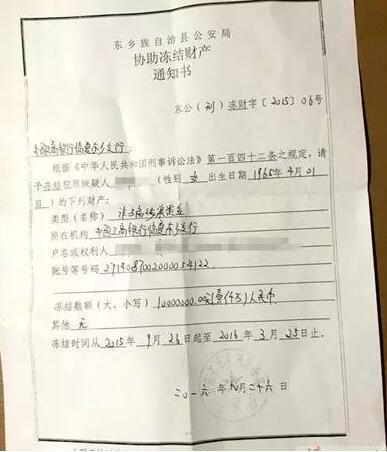 东乡族自治县公安局
协助冻结财产
通知书
东公(刑)冻财字〔2015〕06号
中国工商银行临夏东乡支行:
根据《中华人民共和国刑事诉讼法》第一百四十二条之规定,请
予冻结犯罪嫌疑人 (性别 女 出生日期 1965年4月01
日)的下列财产:
类型(名称)
所在机构 中国工商银行临夏东乡支行
户名或权利人
账号等号码 2713087002000054122
冻结数额(大、小写) 10000000.00元(壹仟万)人民币
其他 无
冻结时间从2015年9月26日起至2016年3月25日止。
二〇一 年九月二十六日